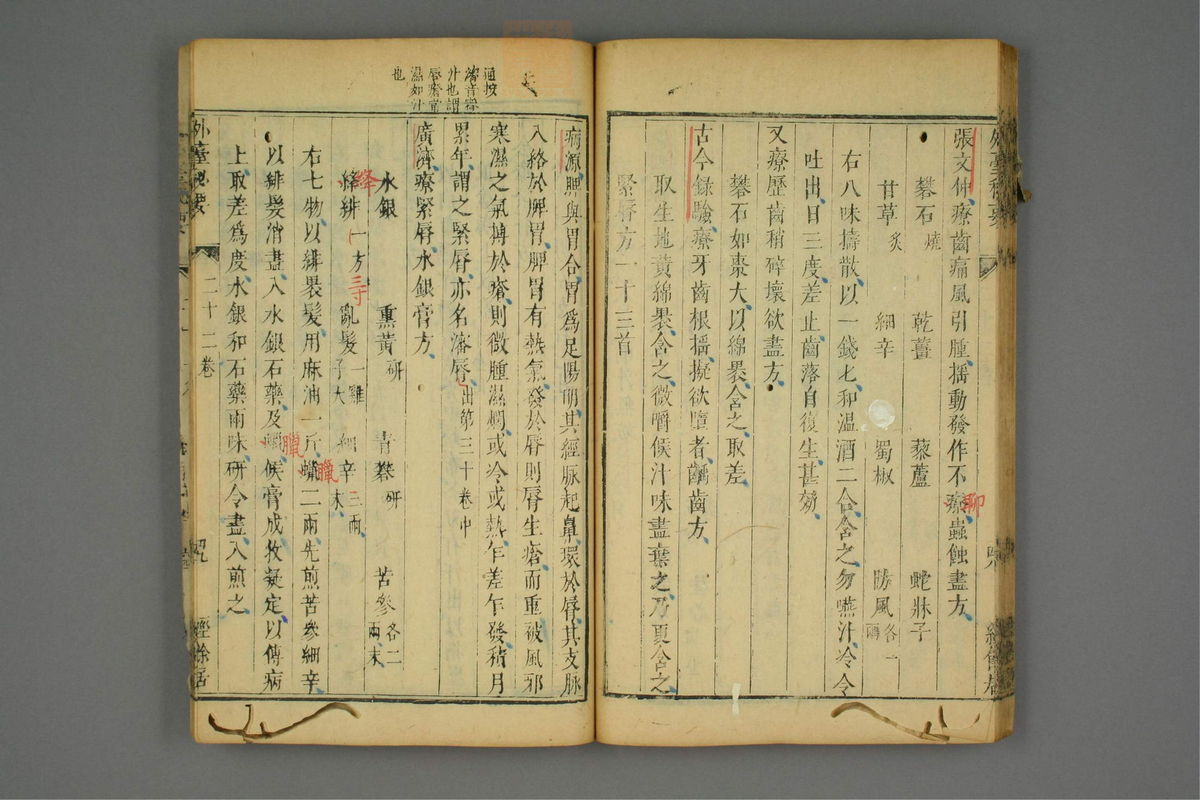 張文仲療齒痛風引腫搖動發作不瘳蟲蝕盡方
礬石燒 乾薑 藜蘆 蛇牀子
甘草炙 細辛 蜀椒 防風各一兩
右八味擣散以一錢匕和溫酒二合含之勿嚥汁冷令
吐出日三度差止齒落自復生甚效
又療歷齒稍碎壞欲盡方
礬石如棗大以綿裹含之取差
古今錄驗療牙齒根搖擬欲墮者齲齒方
取生地黃綿裹含之微嚼候汁味盡棄之乃更含之
緊唇方一十三首
通按
瀋音審
汁也謂
唇瘡常
濕如汁
也
病源脾與胃合胃為足陽明其經脉起鼻環於唇其支脉
入絡於脾胃脾胃有熱氣發於唇則唇生瘡而重被風邪
寒濕之氣搏於瘡則微腫濕爛或冷或熱乍差乍發積月
累年謂之緊唇亦名瀋唇出第三十卷中
廣濟療緊唇水銀膏方
水銀 熏黃研 青礬研 苦參各二兩末
絳緋一方三寸 亂髮一雞子大 細辛三兩末
絳
右七物以緋裹髮用麻油一斤蠟二兩先煎苦參細辛
臘
以緋髮消盡入水銀石藥及 候膏成攪凝定以傅病
臘
上取差為度水銀和石藥兩味研令盡入煎之
外臺秘要
二十二卷
經餘居